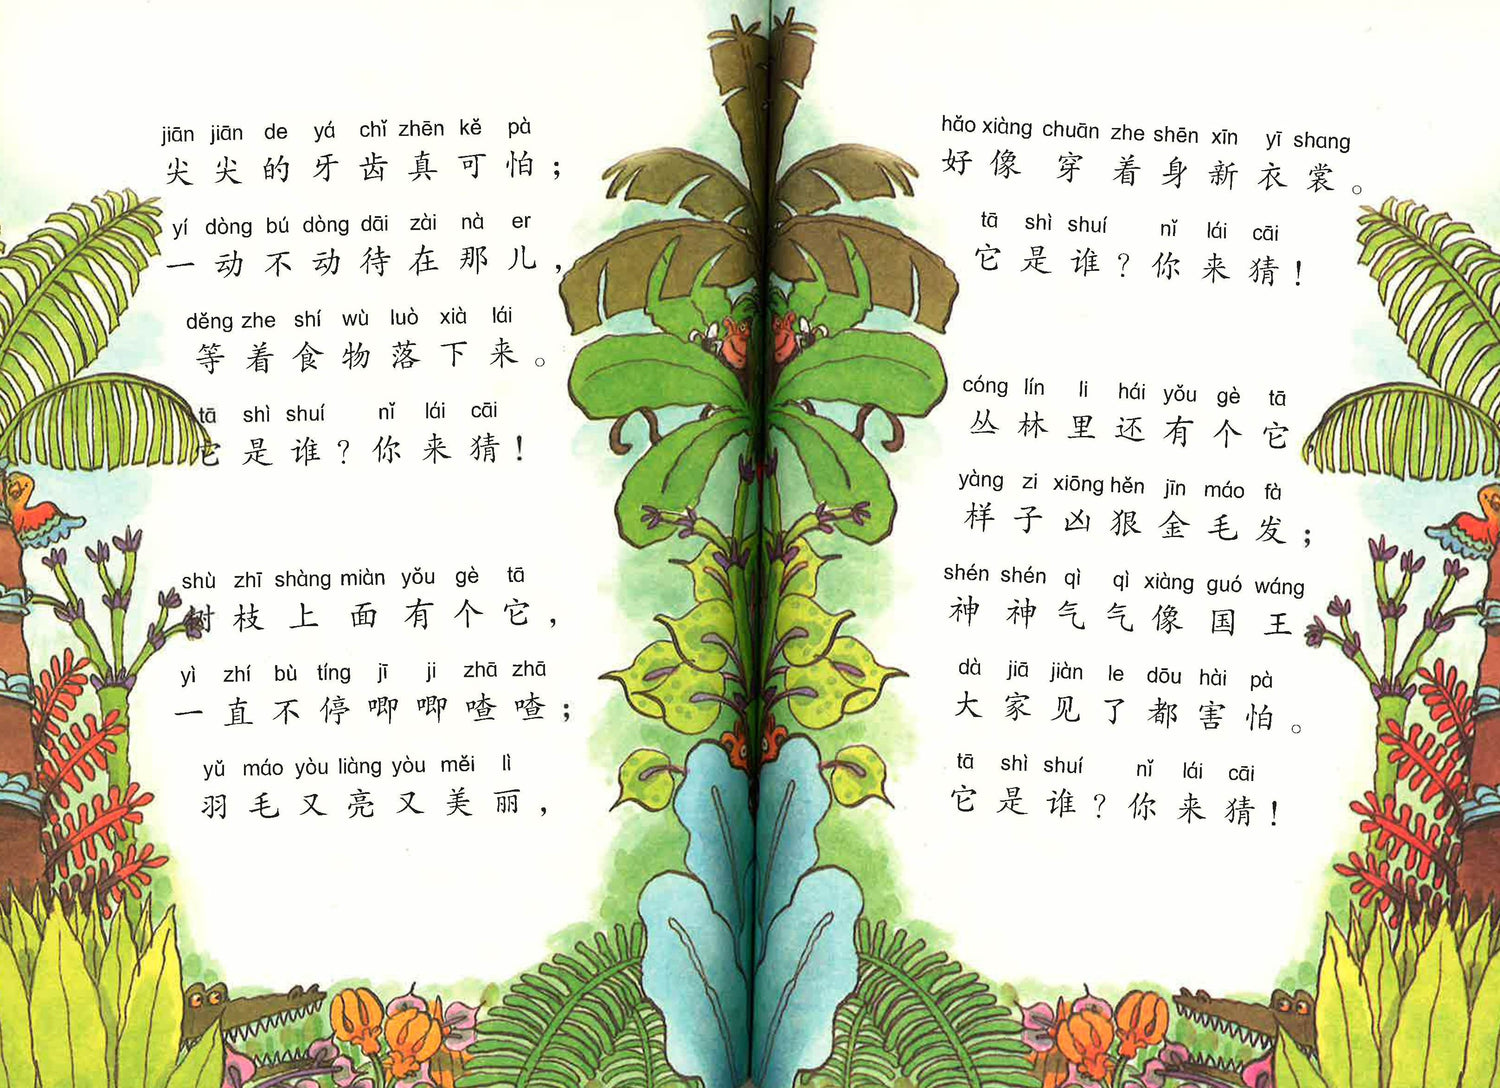 jiān jiān de yá chǐ zhēn kě pà
尖尖的牙齿真可怕；
yí dòng bú dòng dāi zài nà er
一动不动待在那儿，
děng zhe shí wù luò xià lái
等着食物落下来。
tā shì shuí nǐ lái cāi
它是谁？你来猜！
shù zhī shàng miàn yǒu gè tā
树枝上面有个它，
yì zhí bù tíng jī ji zhā zhā
一直不停唧唧喳喳；
yǔ máo yòu liàng yòu měi lì
羽毛又亮又美丽，
hǎo xiàng chuān zhe shēn xīn yī shang
好像穿着身新衣裳。
tā shì shuí nǐ lái cāi
它是谁？你来猜！
cóng lín li hái yǒu gè tā
丛林里还有个它
yàng zi xiōng hěn jīn máo fà
样子凶狠金毛发；
shén shén qì qì xiàng guó wáng
神神气气像国王
dà jiā jiàn le dōu hài pà
大家见了都害怕。
tā shì shuí nǐ lái cāi
它是谁？你来猜！